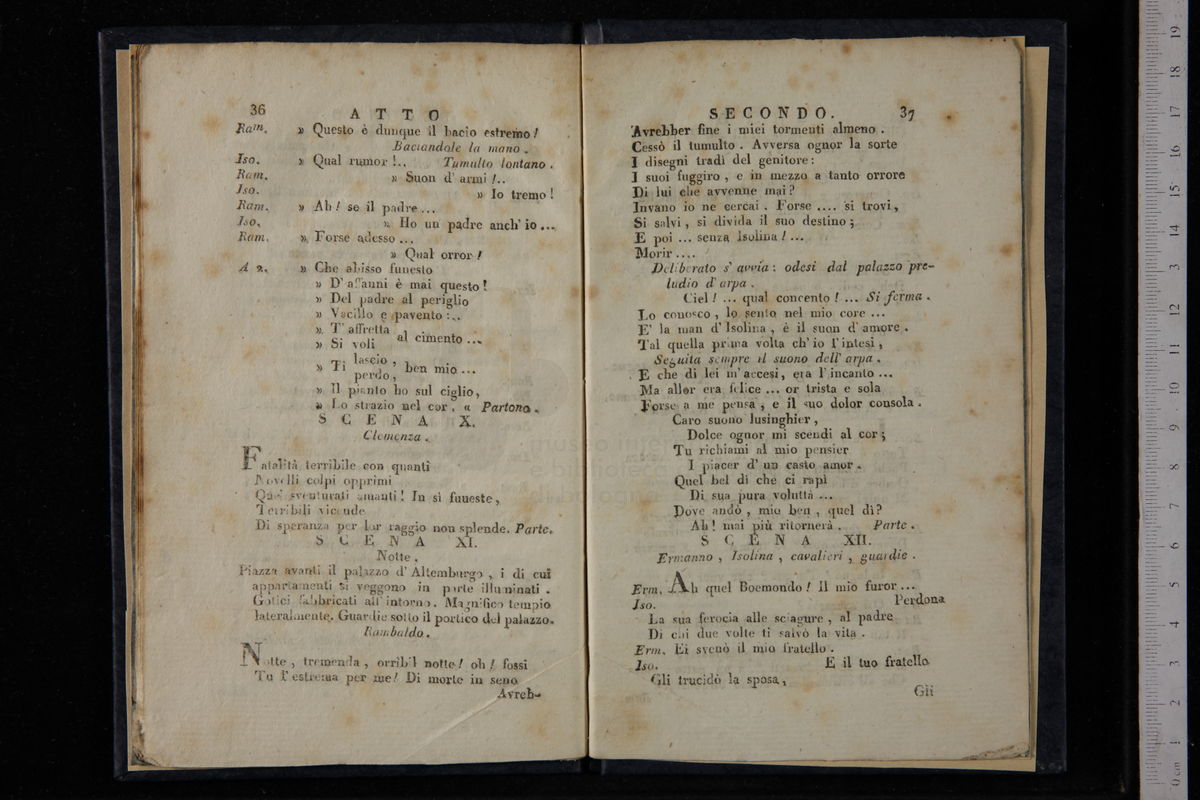 36
ATTO
Ram. » Questo è dunque il bacio estremo!
Baciandole la mano.
Iso. » Qual rumor!.. Tumulto lontano.
Ram. » Suon d' armi!..
Iso. » Io tremo!
Ram. » Ah! se il padre...
Iso. » Ho un padre anch' io...
Ram. » Forse adesso...
» Qual orror!
A 2. » Che abisso funesto
» D' affanni è mai questo!
» Del padre al periglio
» Vacillo e pavento:..
» T' affretta
» Si voli al cimento...
» Ti lascio, ben mio...
perdo,
» Il pianto ho sul ciglio,
» Lo strazio nel cor. « Partono.
SCENA X.
Clemenza.
Fatalità terribile con quanti
Novelli colpi opprimi
Que' sventurati amanti! In sì funeste,
Terribili vicende
Di speranza per lor raggio non splende. Parte.
SCENA XI.
Notte.
Piazza avanti il palazzo d' Altemburgo, i di cui
appartamenti si veggono in parte illuminati.
Gotici fabbricati all' intorno. Magnifico tempio
lateralmente. Guardie sotto il portico del palazzo.
Rambaldo.
Notte, tremenda, orribil notte! oh! fossi
Tu l' estrema per me! Di morte in seno
Avreb-
SECONDO.
37
Avrebber fine i miei tormenti almeno.
Cessò il tumulto. Avversa ognor la sorte
I disegni tradì del genitore:
I suoi fuggiro, e in mezzo a tanto orrore
Di lui che avvenne mai?
Invano io ne cercai. Forse .... si trovi,
Si salvi, si divida il suo destino;
E poi ... senza Isolina! ...
Morir ....
Deliberato s' avvia: odesi dal palazzo pre-
ludio d' arpa.
Ciel! ... qual concento! ... Si ferma.
Lo conosco, lo sento nel mio core ...
E' la man d' Isolina, è il suon d' amore.
Tal quella prima volta ch' io l' intesi,
Seguita sempre il suono dell' arpa.
E che di lei m' accesi, era l' incanto ...
Ma allor era felice ... or trista e sola
Forse a me pensa, e il suo dolor consola.
Caro suono lusinghier,
Dolce ognor mi scendi al cor;
Tu richiami al mio pensier
I piacer d' un casto amor.
Quel bel dì che ci rapì
Di sua pura voluttà ...
Dove andò, mio ben, quel dì?
Ah! mai più ritornerà. Parte.
SCENA XII.
Ermanno, Isolina, cavalieri, guardie.
Erm. Ah quel Boemondo! il mio furor ...
Iso. Perdona
La sua ferocia alle sciagure, al padre
Di chi due volte ti salvò la vita.
Erm. Ei svenò il mio fratello.
Iso. E il tuo fratello
Gli trucidò la sposa,
Gli